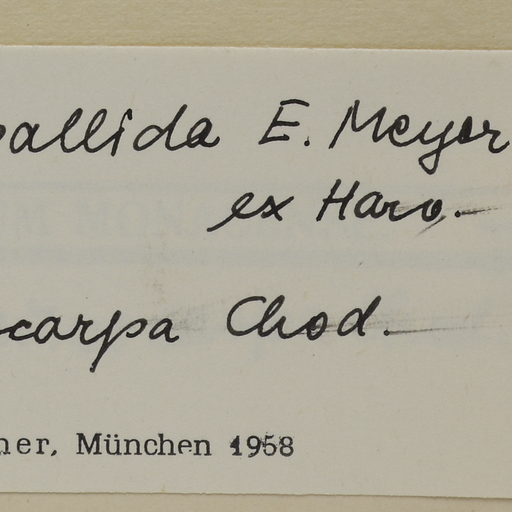 pallida E. Meyer
ex Harv.
carpa Chod.
ner, München 1958